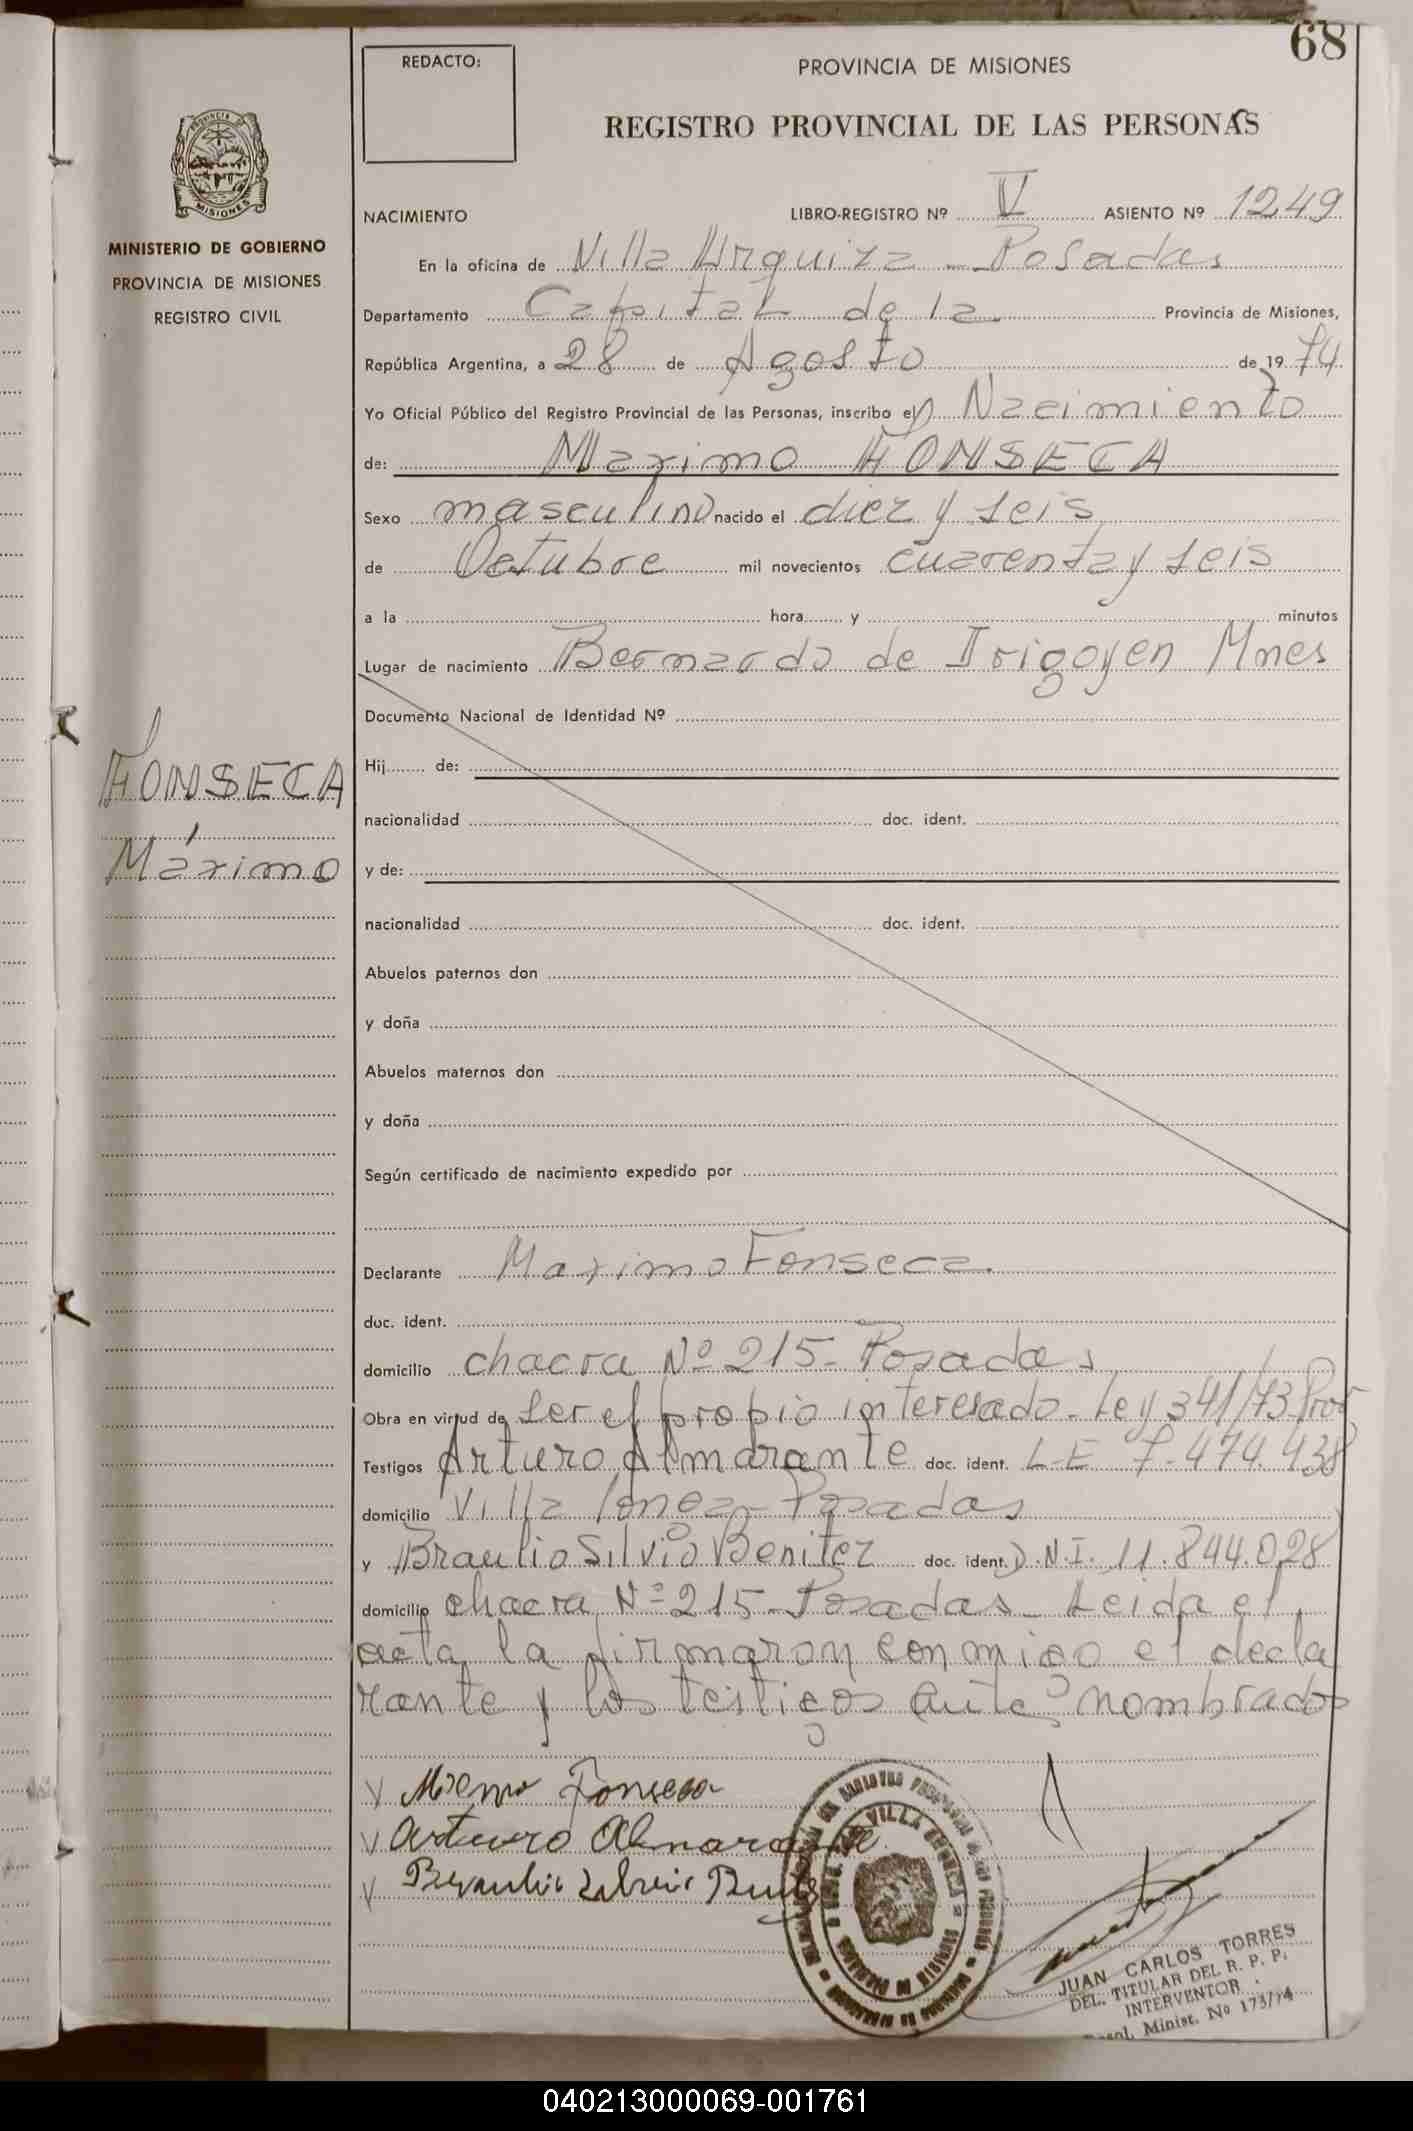 68
REDACTO:
PROVINCIA DE MISIONES
REGISTRO PROVINCIAL DE LAS PERSONAS
PROVINCIA DE
MISIONES
MINISTERIO DE GOBIERNO
PROVINCIA DE MISIONES
REGISTRO CIVIL
NACIMIENTO LIBRO-REGISTRO Nº V ASIENTO Nº 1249
En la oficina de Villa Urquiza - Posadas
Departamento Capital de la Provincia de Misiones,
República Argentina, a 28 de Agosto de 1974
Yo Oficial Público del Registro Provincial de las Personas, inscribo el Nacimiento
de: Maximo FONSECA
Sexo masculino nacido el diez y seis
de Octubre mil novecientos cuarenta y seis
a la hora y minutos
Lugar de nacimiento Bernardo de Irigoyen Mnes
Documento Nacional de Identidad Nº
FONSECA
Máximo
Hij de:
nacionalidad doc. ident.
y de:
nacionalidad doc. ident.
Abuelos paternos don
y doña
Abuelos maternos don
y doña
Según certificado de nacimiento expedido por
Declarante Maximo Fonseca.
doc. ident.
domicilio chacra Nº 215 - Posadas
Obra en virtud de ser el propio interesado - Ley 341/73 Prov
Testigos Arturo Almarante doc. ident. L-E 7.474.438
domicilio Villa - Posadas
y Braulio Silvio Benitez doc. ident. D.N.I. 11.844.028
domicilio chacra Nº 215 - Posadas - Leida el
acta la firmaron conmigo el decla
rante y los testigos antes nombrados
Fonseca
Arturo Almarante
VILLA URQUIZA
JUAN CARLOS TORRES
DEL. TITULAR DEL R. P. P.
INTERVENTOR
Minist. Nº 173/74
040213000069-001761